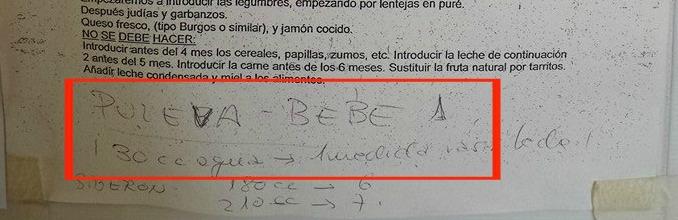 Empezaremos a introducir las legumbres, empezando por lentejas en puré.
Después judías y garbanzos.
Queso fresco, (tipo Burgos o similar), y jamón cocido.
NO SE DEBE HACER:
Introducir antes del 4 mes los cereales, papillas, zumos, etc. Introducir la leche de continuación
2 antes del 5 mes. Introducir la carne antes de los 6 meses. Sustituir la fruta natural por tarritos.
Añadir leche condensada y miel a los alimentos.
PULEVA - BEBE 1
30 cc agua → 1 medida
BIBERON 180 cc → 6
210 cc → 7.